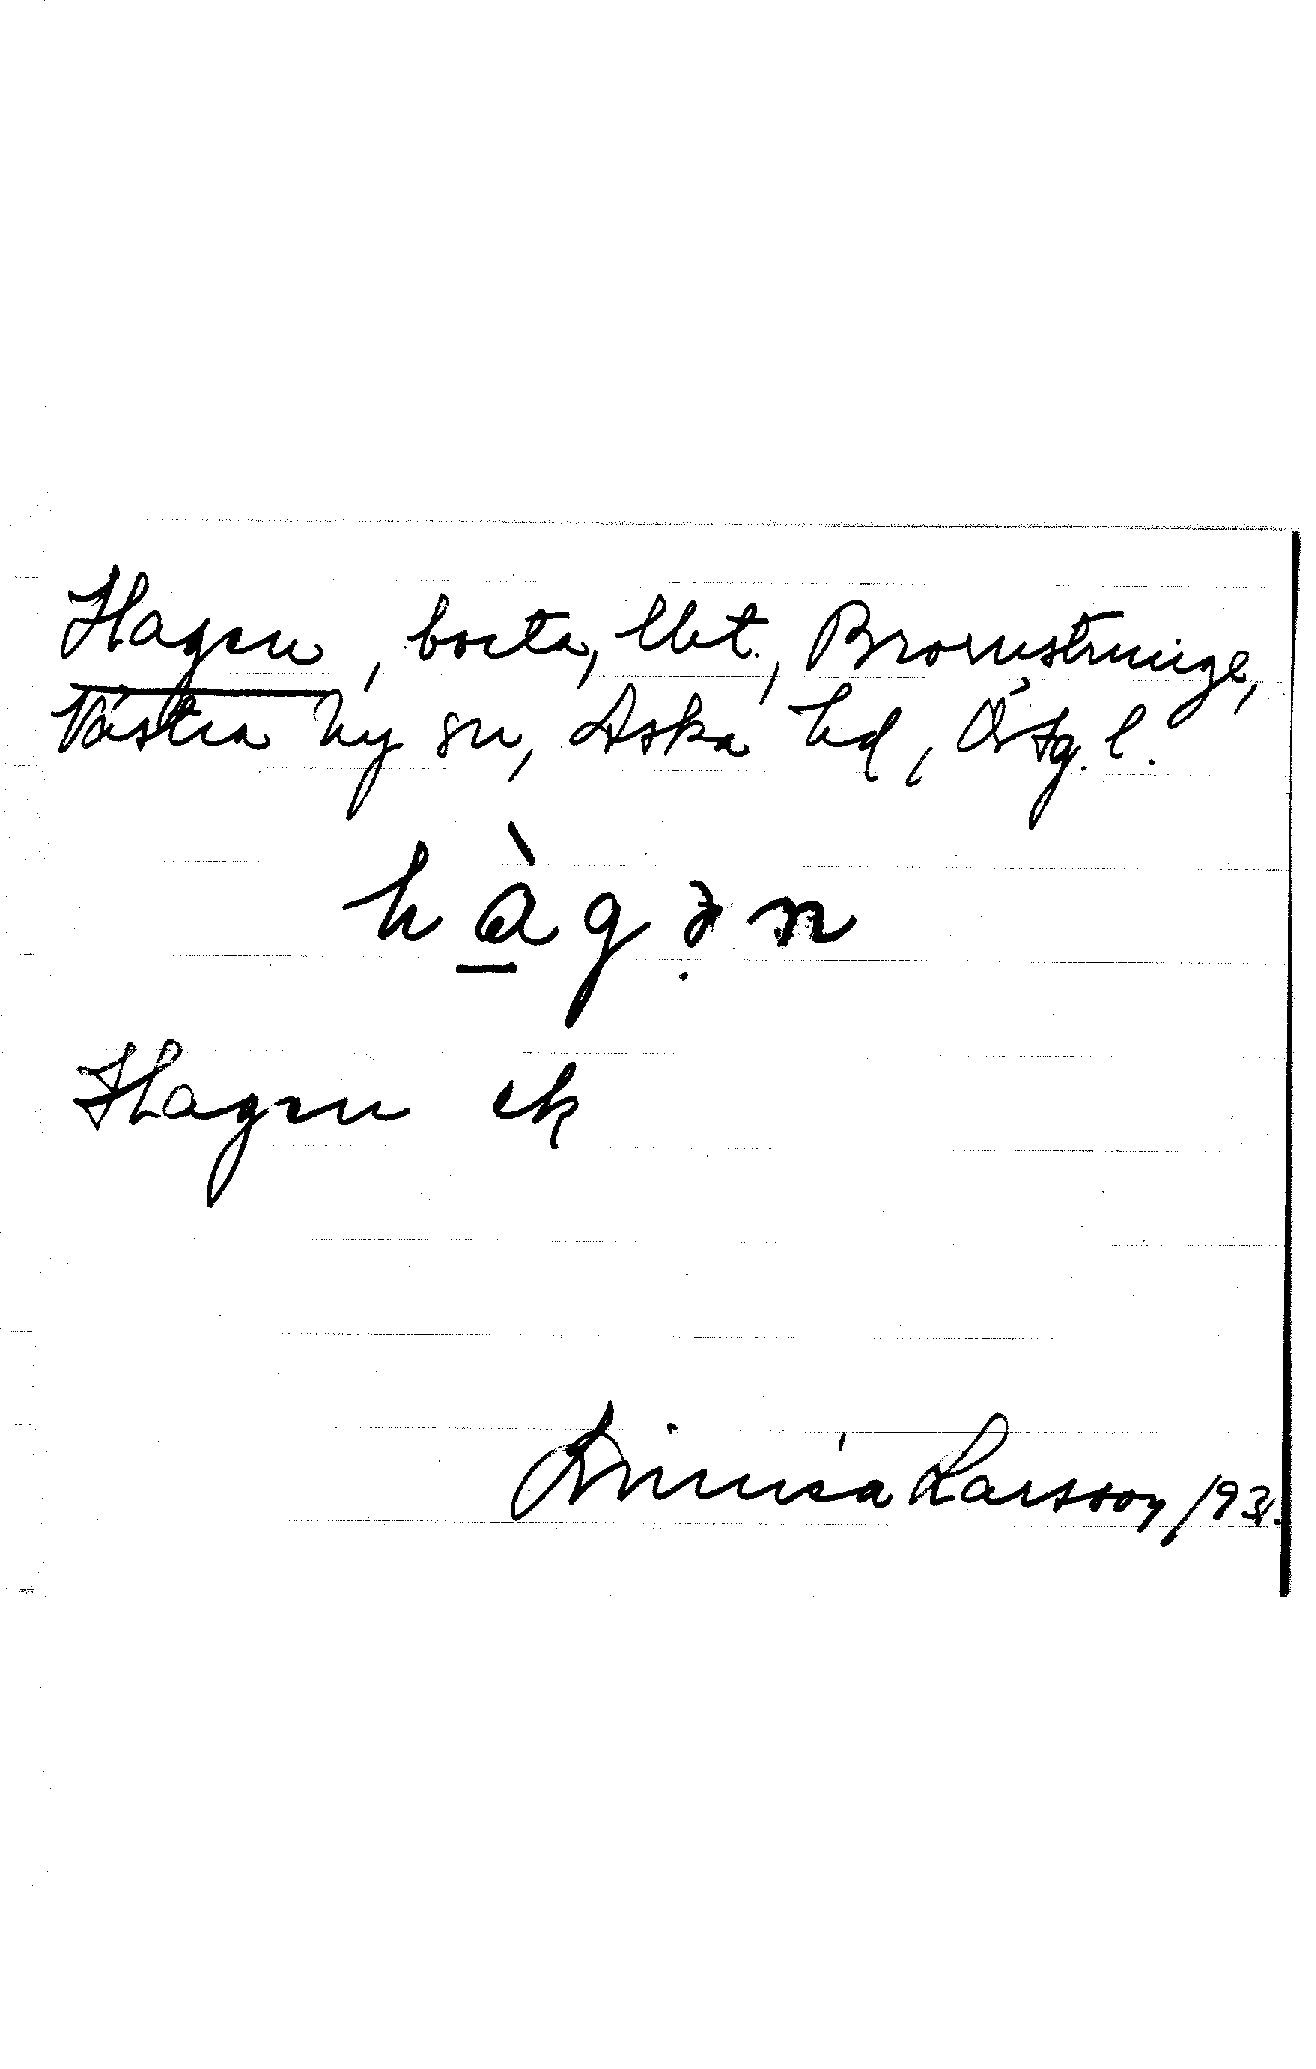 Hagen, bosta, lht., Bromstringe,
Västra Ny sn, Aska hd, Östg. l.
hàgən
Hagen ek
Linnéa Larsson 1931.